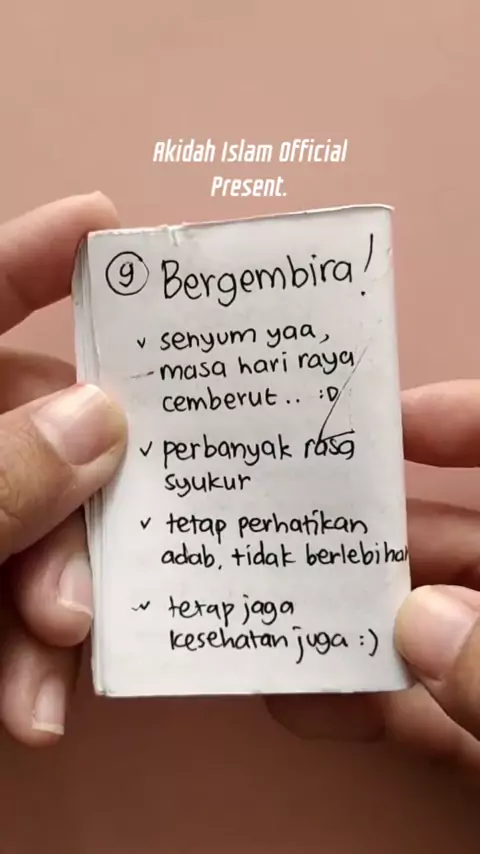 Akidah Islam Official
Present.
9 Bergembira!
senyum yaa,
masa hari raya
cemberut.. :D
perbanyak rasa
syukur
tetap perhatikan
adab, tidak berlebihan
tetap jaga
kesehatan juga :)